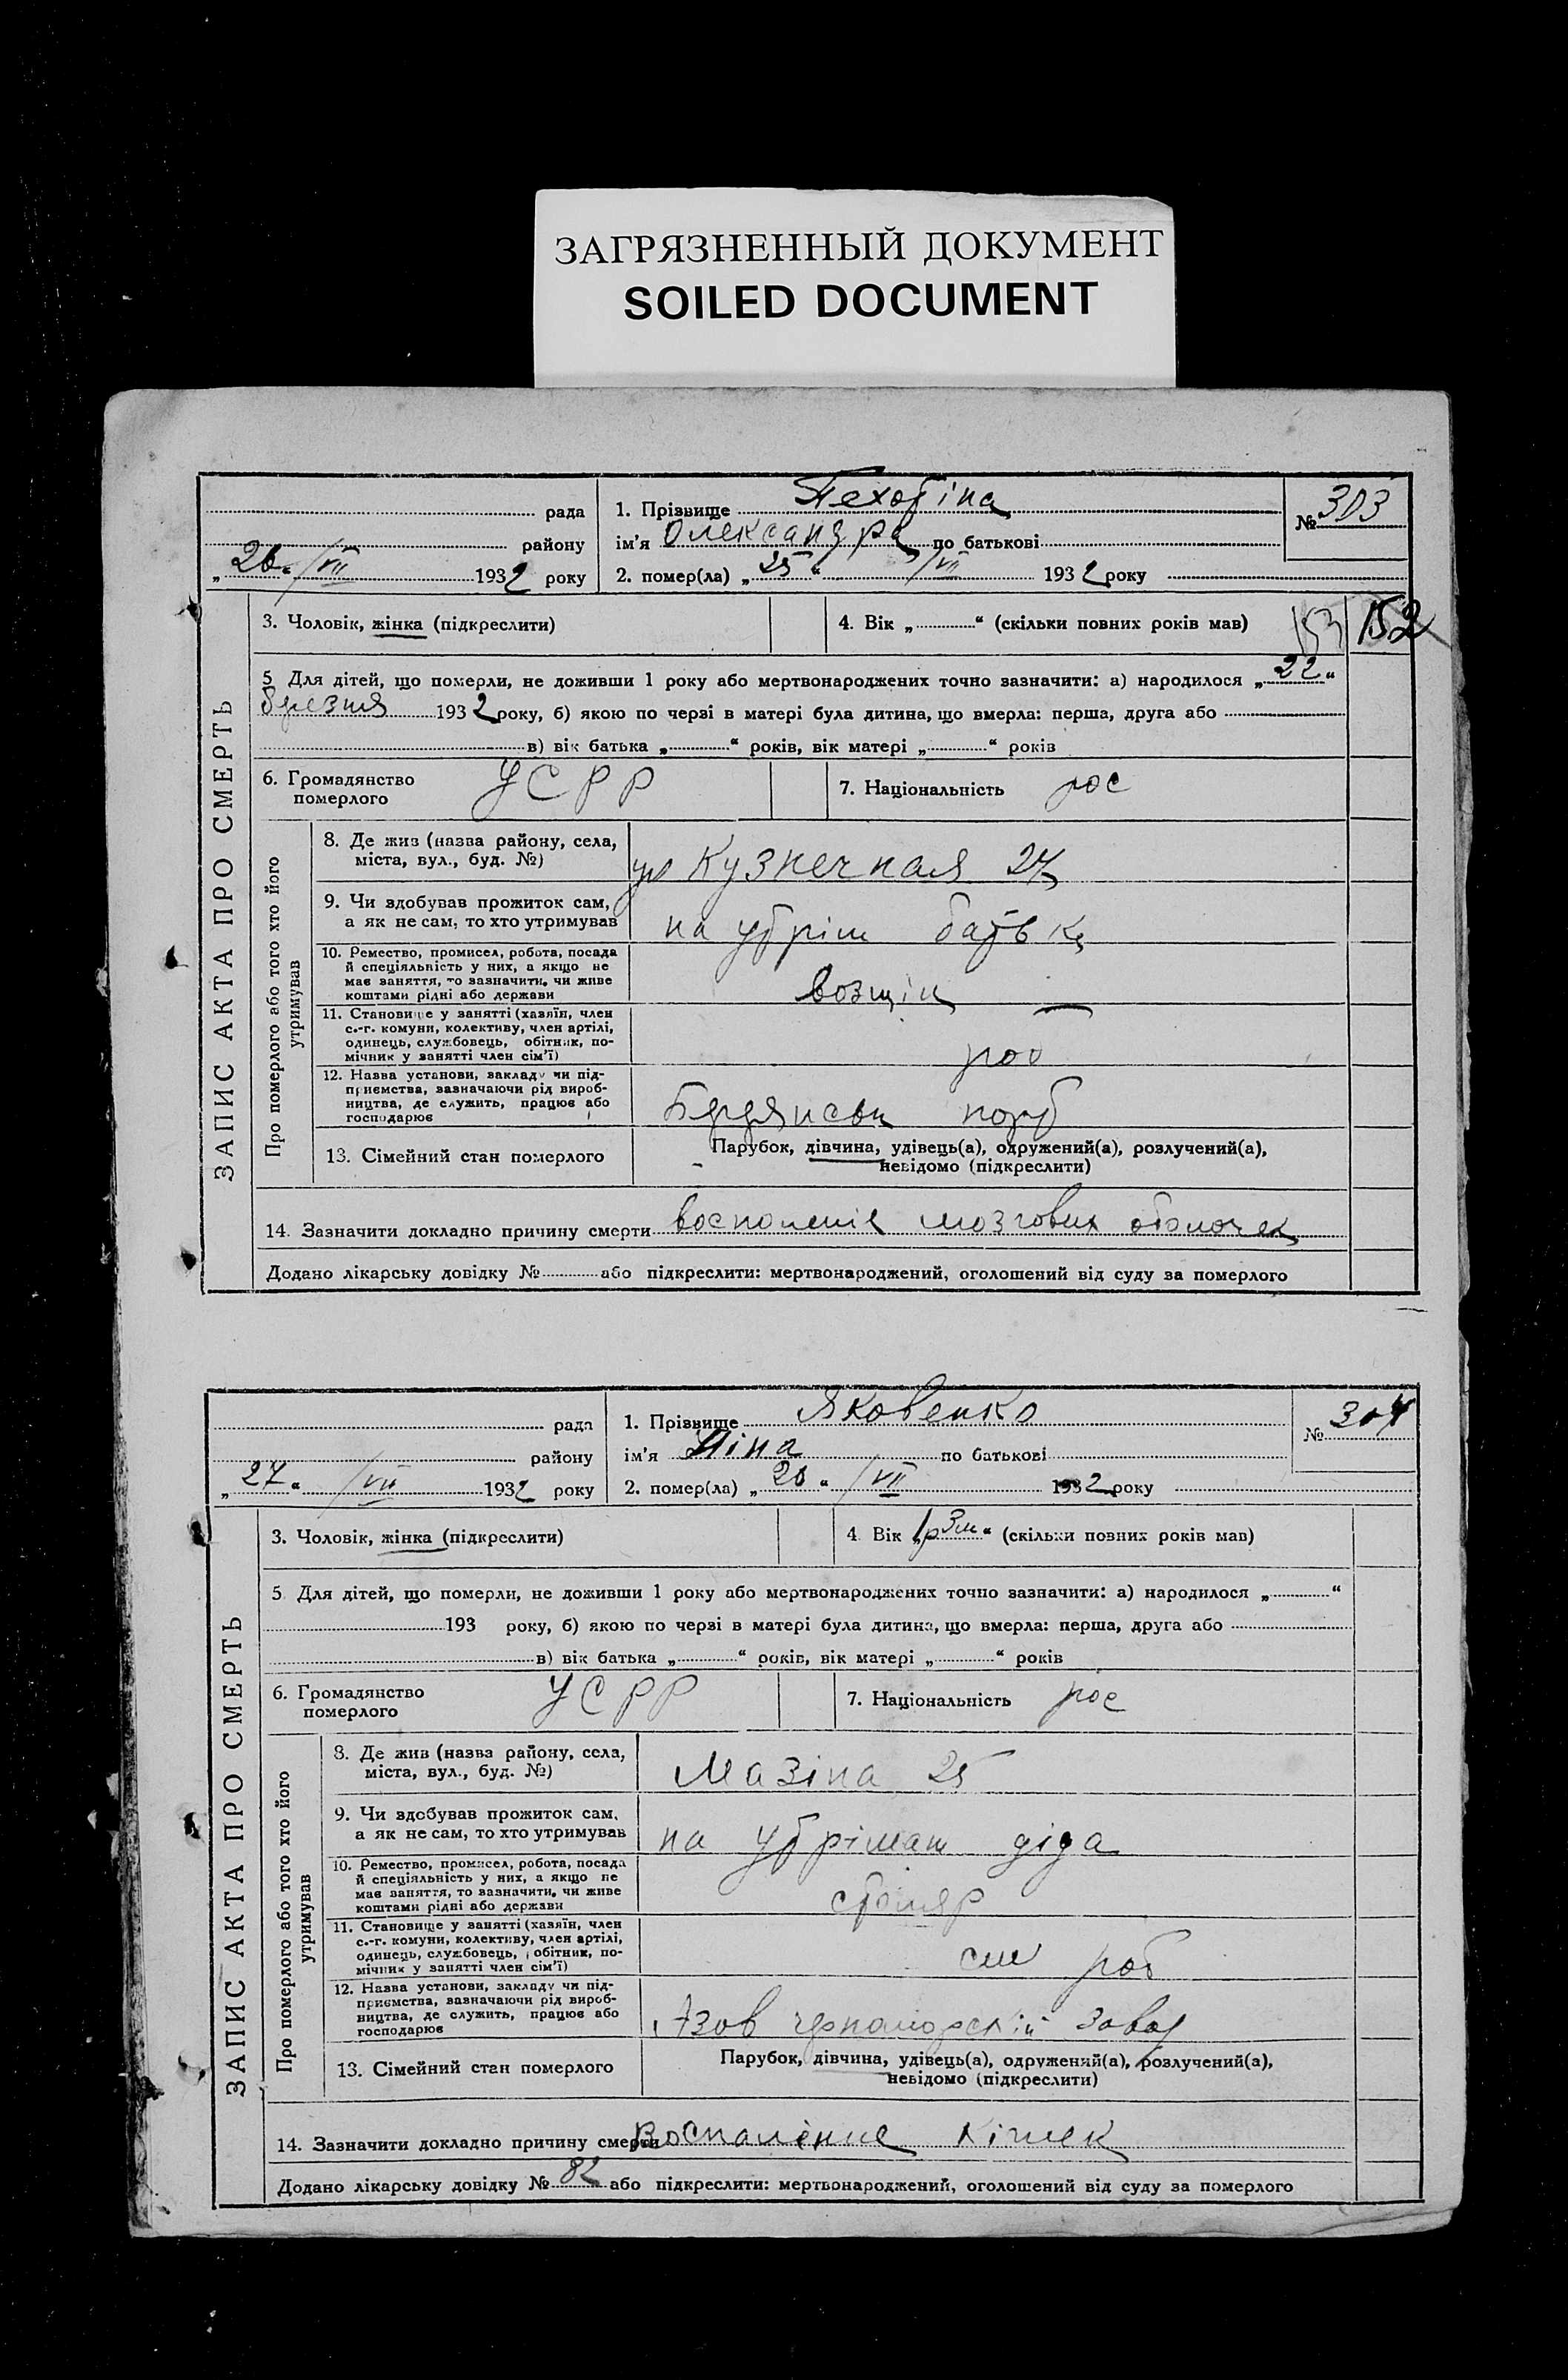 ЗАГРЯЗНЕННЫЙ ДОКУМЕНТ
SOILED DOCUMENT
рада
району
„26“ /VII 1932 року
1. Прізвище
ім’я Олександра по батькові
2. помер(ла) „25“ /VII 1932 року
№ 303
ЗАПИС АКТА ПРО СМЕРТЬ
3. Чоловік, жінка (підкреслити)
4. Вік „ “ (скільки повних років мав)
153 152
5 Для дітей, що померли, не доживши 1 року або мертвонароджених точно зазначити: а) народилося „22“
березня 1932 року, б) якою по черзі в матері була дитина, що вмерла: перша, друга або
в) вік батька „ “ років, вік матері „ “ років
6. Громадянство
померлого
УСРР
7. Національність рос
Про померлого або того хто його
утримував
8. Де жив (назва району, села,
міста, вул., буд. №)
ул Кузнечная 27
9. Чи здобував прожиток сам,
а як не сам, то хто утримував
на утрім батьк
10. Ремество, промисел, робота, посада
й спеціяльність у них, а якщо не
має заняття, то зазначити, чи живе
коштами рідні або держави
возщик
11. Становище у занятті (хазяїн, член
с.-г. комуни, колективу, член артілі,
одинець, службовець, обітник, по-
мічник у занятті член сім’ї)
роб
12. Назва установи, закладу чи під-
приємства, зазначаючи рід вироб-
ництва, де служить, працює або
господарює
порт
13. Сімейний стан померлого
Парубок, дівчина, удівець(а), одружений(а), розлучений(а),
невідомо (підкреслити)
14. Зазначити докладно причину смерти воспаленіе мозгових оболочек
Додано лікарську довідку № або підкреслити: мертвонароджений, оголошений від суду за померлого
рада
району
„27“ /VII 1932 року
1. Прізвище Яковенко
ім’я Ніна по батькові
2. помер(ла) „26“ /VII 1932 року
№ 304
ЗАПИС АКТА ПРО СМЕРТЬ
3. Чоловік, жінка (підкреслити)
4. Вік „1р 3м“ (скільки повних років мав)
5 Для дітей, що померли, не доживши 1 року або мертвонароджених точно зазначити: а) народилося „ “
193 року, б) якою по черзі в матері була дитина, що вмерла: перша, друга або
в) вік батька „ “ років, вік матері „ “ років
6. Громадянство
померлого
УСРР
7. Національність рос
Про померлого або того хто його
утримував
8. Де жив (назва району, села,
міста, вул., буд. №)
Мазіна 25
9. Чи здобував прожиток сам,
а як не сам, то хто утримував
на утріман діда
10. Ремество, промисел, робота, посада
й спеціяльність у них, а якщо не
має заняття, то зазначити, чи живе
коштами рідні або держави
столяр
11. Становище у занятті (хазяїн, член
с.-г. комуни, колективу, член артілі,
одинець, службовець, обітник, по-
мічник у занятті член сім’ї)
роб
12. Назва установи, закладу чи під-
приємства, зазначаючи рід вироб-
ництва, де служить, працює або
господарює
Азов чорноморскій завод
13. Сімейний стан померлого
Парубок, дівчина, удівець(а), одружений(а), розлучений(а),
невідомо (підкреслити)
14. Зазначити докладно причину смерти Воспаленіие кішек
Додано лікарську довідку № 82 або підкреслити: мертвонароджений, оголошений від суду за померлого